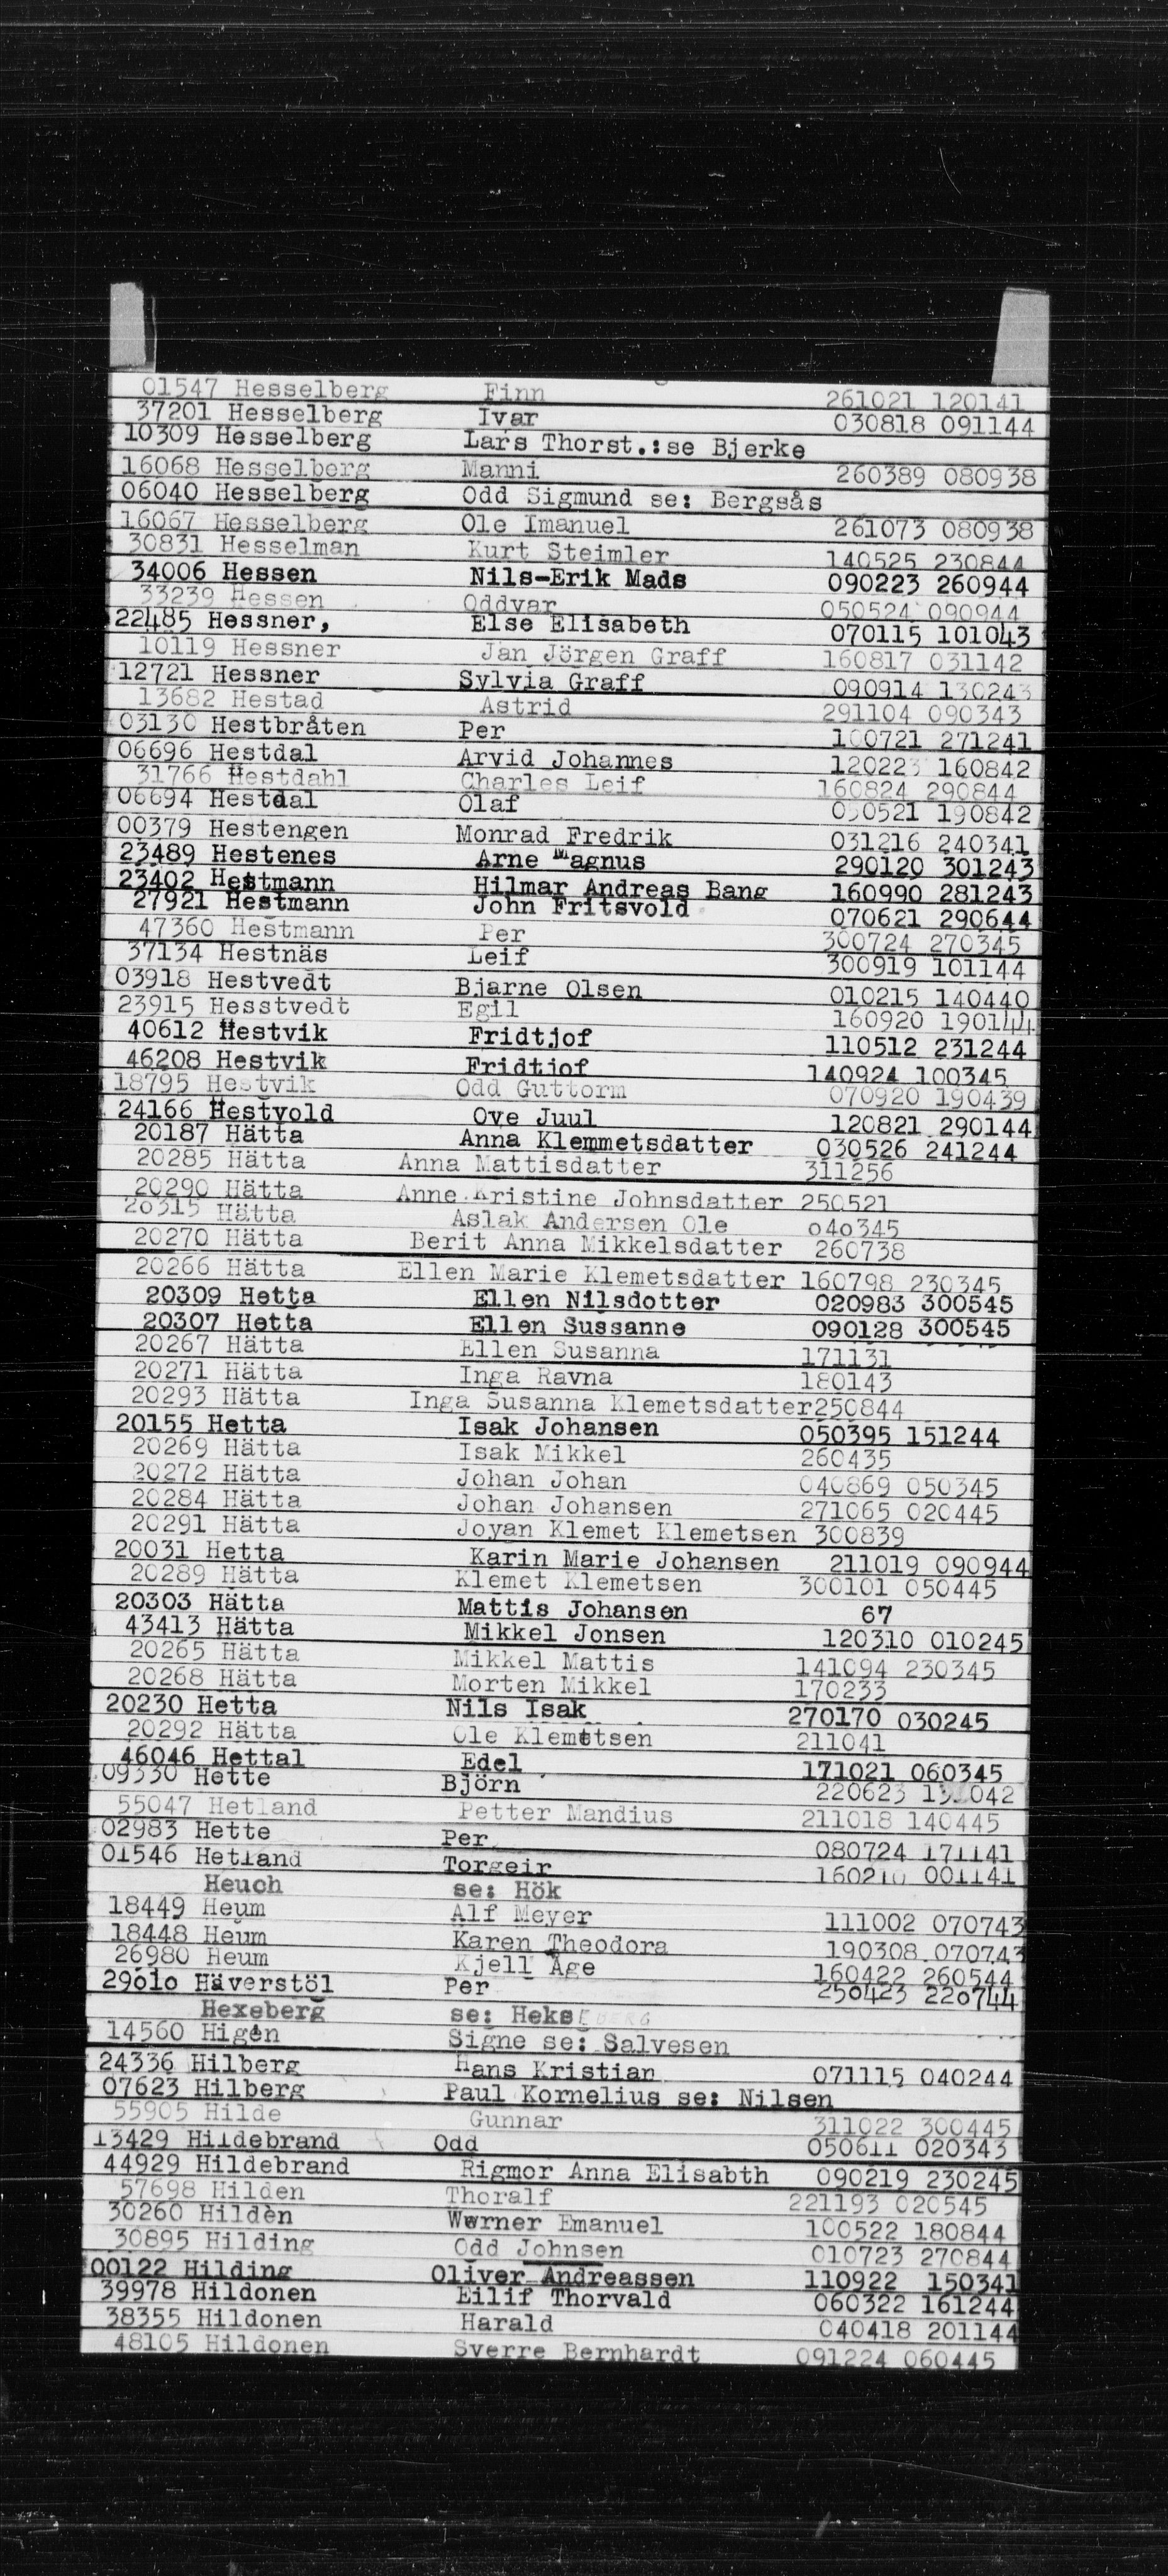 01547 Hesselberg Finn 261021 120141
37201 Hesselberg Ivar 030818 091144
10309 Hesselberg Lars Thorst.:se Bjerke
16068 Hesselberg Manni 260389 080938
06040 Hesselberg Odd Sigmund se: Bergsås
16067 Hesselberg Ole Imanuel 261073 080938
30831 Hesselman Kurt Steimler 140525 230844
34006 Hessen Nils-Erik Mads 090223 260944
33239 Hessen Oddvar 050524 090944
22485 Hessner, Else Elisabeth 070115 101043
10119 Hessner Jan Jörgen Graff 160817 031142
12721 Hessner Sylvia Graff 090914 130243
13682 Hestad Astrid 291104 090343
03130 Hestbråten Per 100721 271241
06696 Hestdal Arvid Johannes 120223 160842
31766 Hestdahl Charles Leif 160824 290844
06694 Hestdal Olaf 190842
00379 Hestengen Monrad Fredrik 031216 240341
23489 Hestenes Arne Magnus 290120 301243
23402 Hestmann Hilmar Andreas Bang 160990 281243
27921 Hestmann John Fritsvold 070621 290644
47360 Hestmann Per 300724 270345
37134 Hestnäs Leif 300919 101144
03918 Hestvedt Bjarne Olsen 010215 140440
23915 Hesstvedt Egil 160920 190144
40612 Hestvik Fridtjof 110512 231244
46208 Hestvik Fridtjof 140924 100345
18795 Hestvik Odd Guttorm 070920 190439
24166 Hestvold Ove Juul 120821 290144
20187 Hätta Anna Klemmetsdatter 030526 241244
20285 Hätta Anna Mattisdatter 311256
20290 Hätta Anne Kristine Johnsdatter 250521
20315 Hätta Aslak Andersen Ole 040345
20270 Hätta Berit Anna Mikkelsdatter 260738
20266 Hätta Ellen Marie Klemetsdatter 160798 230345
20309 Hetta Ellen Nilsdotter 020983 300545
20307 Hetta Ellen Sussanne 090128 300545
20267 Hätta Ellen Susanna 171131
20271 Hätta Inga Ravna 180143
20293 Hätta Inga Susanna Klemetsdatter250844
20155 Hetta Isak Johansen 050395 151244
20269 Hätta Isak Mikkel 260435
20272 Hätta Johan Johan 040869 050345
20284 Hätta Johan Johansen 271065 020445
20291 Hätta Joyan Klemet Klemetsen 300839
20031 Hetta Karin Marie Johansen 211019 090944
20289 Hätta Klemet Klemetsen 300101 050445
20303 Hätta Mattis Johansen 67
43413 Hätta Mikkel Jonsen 120310 010245
20265 Hätta Mikkel Mattis 141094 230345
20268 Hätta Morten Mikkel 170233
20230 Hetta Nils Isak 270170 030245
20292 Hätta Ole Klemetsen 211041
46046 Hettal Edel 171021 060345
09330 Hette Björn 220623
55047 Hetland Petter Mandius 211018 140445
02983 Hette Per 080724 171141
01546 Hetland Torgeir 160210 001141
Heuch se: Hök
18449 Heum Alf Meyer 111002 070743
18448 Heum Karen Theodora 190308 070743
26980 Heum Kjell Åge 160422 260544
29610 Häverstöl Per 250423 220744
Hexeberg se: Hekseberg
14560 Higèn Signe se: Salvesen
24336 Hilberg Hans Kristian 071115 040244
07623 Hilberg Paul Kornelius se: Nilsen
55905 Hilde Gunnar 311022 300445
13429 Hildebrand Odd 050611 020343
44929 Hildebrand Rigmor Anna Elisabth 090219 230245
57698 Hilden Thoralf 221193 020545
30260 Hildèn Werner Emanuel 100522 180844
30895 Hilding Odd Johnsen 010723 270844
00122 Hilding Oliver Andreassen 110922 150341
39978 Hildonen Eilif Thorvald 060322 161244
38355 Hildonen Harald 040418 201144
48105 Hildonen Sverre Bernhardt 091224 060445